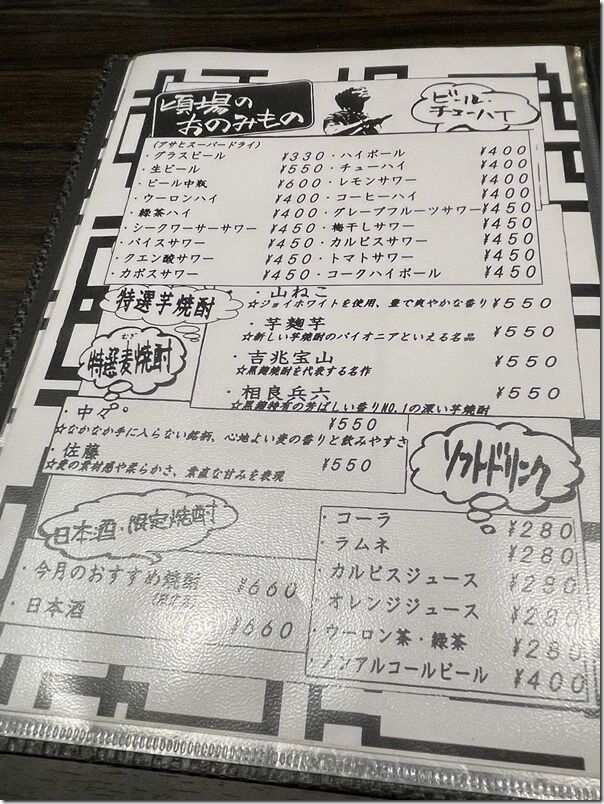 頃場の
おのみもの
ビール・
チューハイ
(アサヒスーパードライ)
・グラスビール ¥330
・生ビール ¥550
・ビール中瓶 ¥600
・ウーロンハイ ¥400
・緑茶ハイ ¥400
・シークワーサーサワー ¥450
・バイスサワー ¥450
・クエン酸サワー ¥450
・カボスサワー ¥450
・ハイボール ¥400
・チューハイ ¥400
・レモンサワー ¥400
・コーヒーハイ ¥400
・グレープフルーツサワー ¥450
・梅干しサワー ¥450
・カルピスサワー ¥450
・トマトサワー ¥450
・コークハイボール ¥450
特選芋焼酎
・山ねこ ¥550
☆ジョイホワイトを使用、豊で爽やかな香り
・芋麹芋 ¥550
☆新しい芋焼酎のパイオニアといえる名品
・吉兆宝山 ¥550
☆黒麹焼酎を代表する名作
・相良兵六 ¥550
☆黒麹特有の芳ばしい香りNO.1の深い芋焼酎
むぎ
特選麦焼酎
・中々 ¥550
☆なかなか手に入らない銘柄、心地よい麦の香りと飲みやすさ
・佐藤 ¥550
☆麦の素材感や柔らかさ、素直な甘みを表現
日本酒・限定焼酎
・今月のおすすめ焼酎 ¥660
・日本酒 ¥660
ソフトドリンク
・コーラ ¥280
・ラムネ ¥280
・カルピスジュース ¥280
・オレンジジュース ¥280
・ウーロン茶・緑茶 ¥280
・ノンアルコールビール ¥400